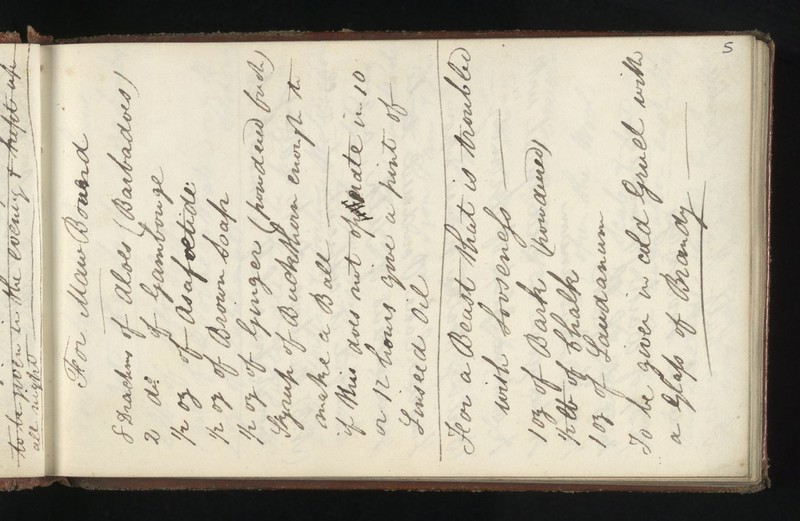 to be given in the evening & kept up
all night
5
For Maw Bound
8 Drachms of Aloes (Barbadoes)
2 do. of Gambouge
1/2 oz of Asafoetide
1/2 oz of Brown Soap
1/2 oz of Ginger (powdered fresh)
Syrup of Buckthorn enough to
make a Ball
if this does not operate in 10
or 12 hours give a pint of
Linseed Oil
For a Beast that is troubled
with Looseness
1 oz of Bark (powdered)
1/2 lb of Chalk
1 oz of Laudanum
To be given in cold Gruel with
a Glass of Brandy